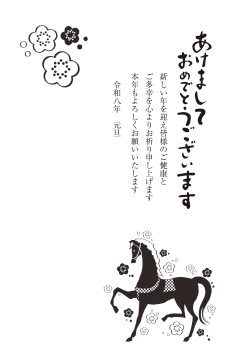 あけまして
おめでとうございます
新しい年を迎え皆様のご健康と
ご多幸を心よりお祈り申し上げます
本年もよろしくお願いいたします
令和八年　元旦